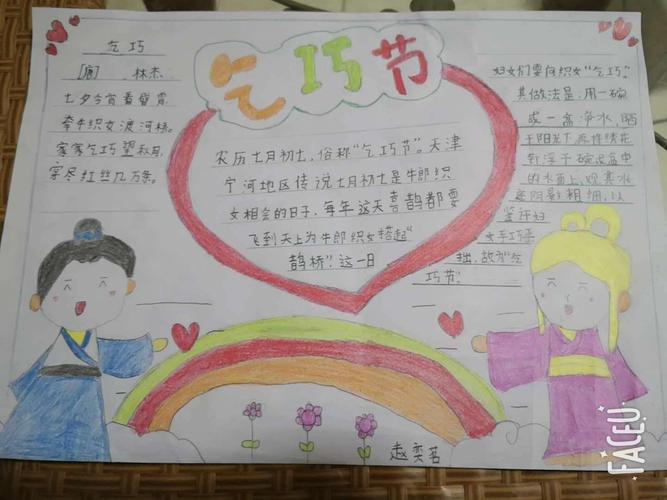 乞巧节
乞巧
[唐] 林杰
七夕今宵看碧霄,
牵牛织女渡河桥。
家家乞巧望秋月,
穿尽红丝几万条。
农历七月初七,俗称“乞巧节”。天津
宁河地区传说七月初七是牛郎织
女相会的日子,每年这天喜鹊都要
飞到天上为牛郎织女搭起“
鹊桥”。这一日
妇女们要向织女“乞巧”。
其做法是:用一碗
或一盆净水,晒
于阳光下,再将绣花
针浮于碗或盆中
的水面上,观其水
底阴影粗细,以
鉴评妇
女手巧手
拙,故为“乞
巧节”
赵奕茗
FACEU